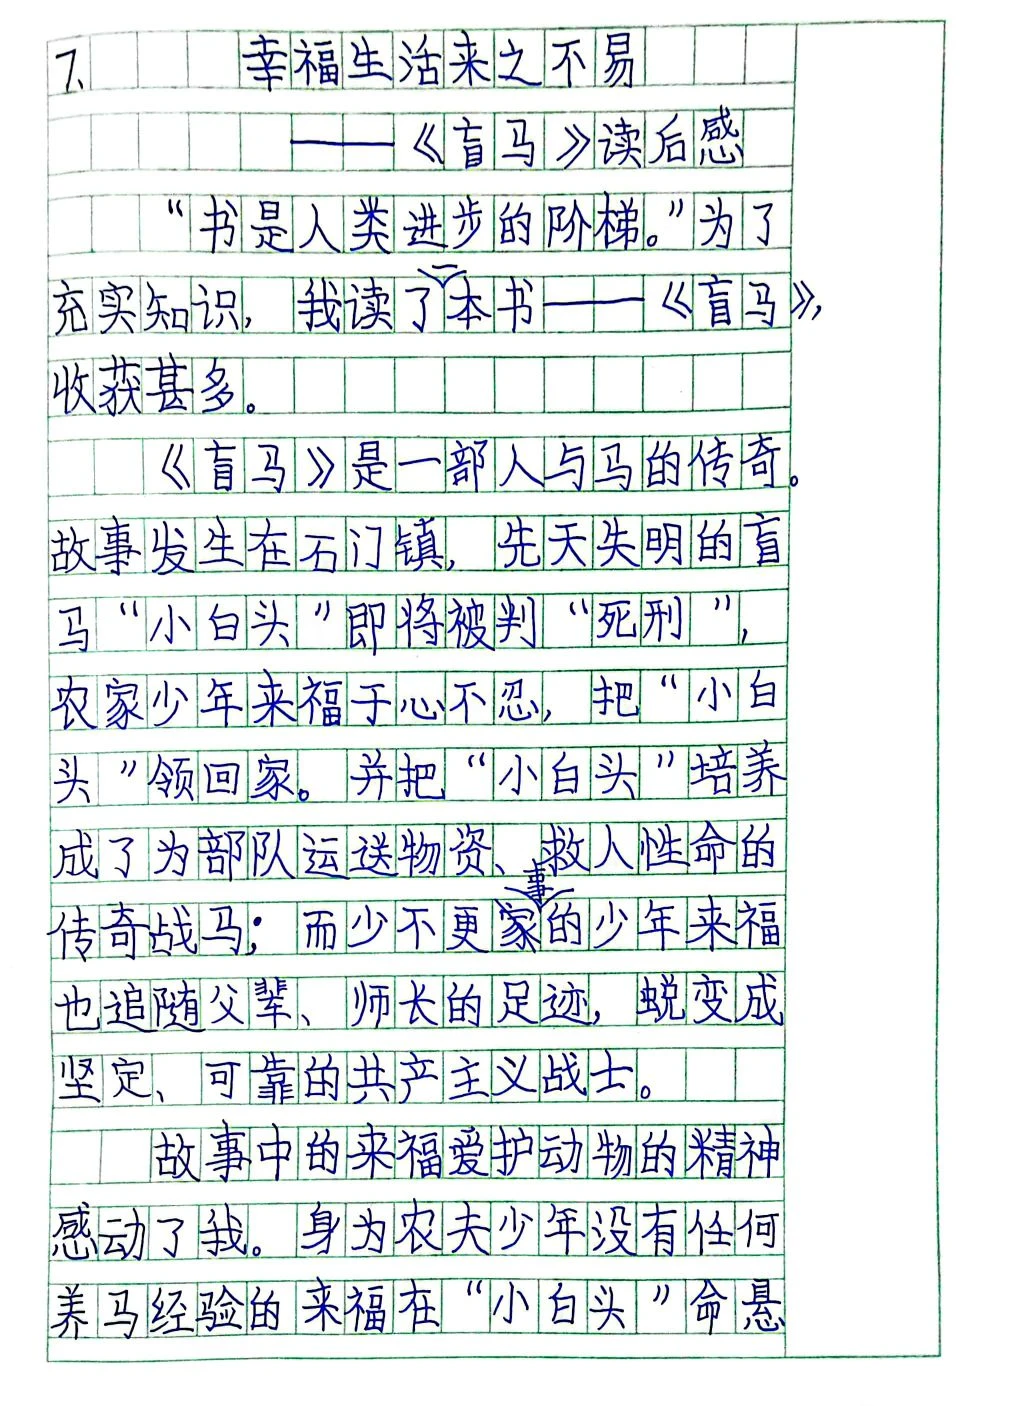 7、 幸福生活来之不易
——《盲马》读后感
“书是人类进步的阶梯。”为了
充实知识，我读了一本书——《盲马》，
收获甚多。
《盲马》是一部人与马的传奇。
故事发生在石门镇，先天失明的盲
马“小白头”即将被判“死刑”，
农家少年来福于心不忍，把“小白
头”领回家。并把“小白头”培养
成了为部队运送物资、救人性命的
传奇战马；而少不更事家的少年来福
也追随父辈、师长的足迹，蜕变成
坚定、可靠的共产主义战士。
故事中的来福爱护动物的精神
感动了我。身为农夫少年没有任何
养马经验的来福在“小白头”命悬